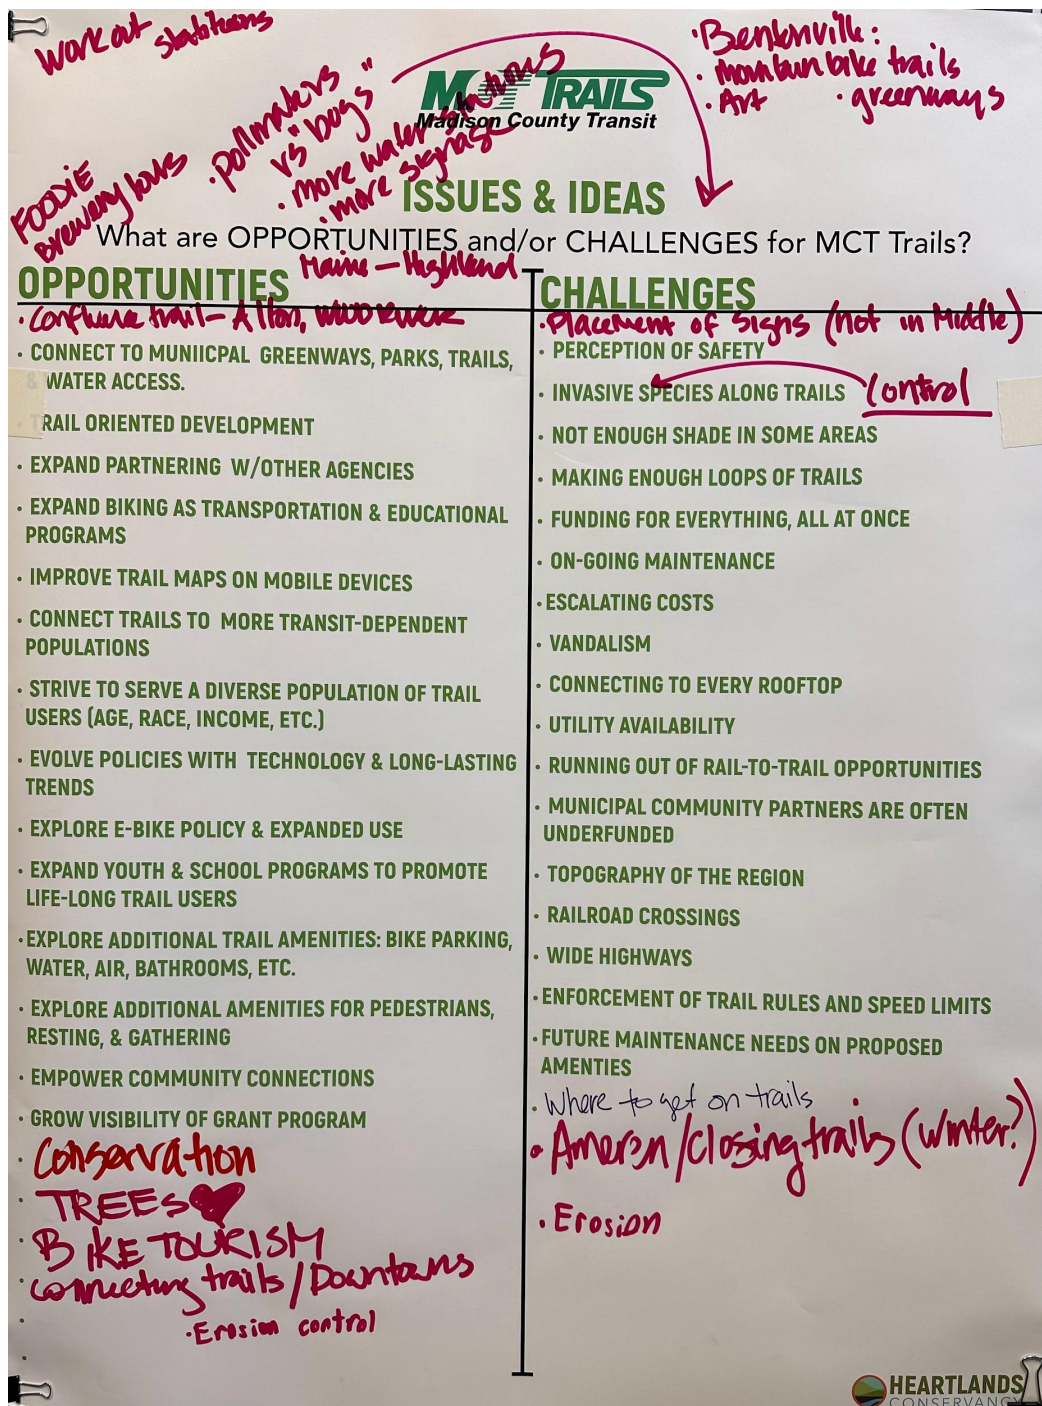 Work out stations
• Bentonville:
• mountain bike trails
• Art • greenways
• pollinators
vs "bogs"
• more water stations
• more signage
FOODIE
Brewery tours
MCT TRAILS
Madison County Transit
ISSUES & IDEAS
What are OPPORTUNITIES and/or CHALLENGES for MCT Trails?
Marine – Highland
OPPORTUNITIES
• Confluence trail – Alton, Wood River
• CONNECT TO MUNIICPAL GREENWAYS, PARKS, TRAILS,
& WATER ACCESS.
TRAIL ORIENTED DEVELOPMENT
• EXPAND PARTNERING W/OTHER AGENCIES
• EXPAND BIKING AS TRANSPORTATION & EDUCATIONAL
PROGRAMS
• IMPROVE TRAIL MAPS ON MOBILE DEVICES
• CONNECT TRAILS TO MORE TRANSIT-DEPENDENT
POPULATIONS
• STRIVE TO SERVE A DIVERSE POPULATION OF TRAIL
USERS (AGE, RACE, INCOME, ETC.)
• EVOLVE POLICIES WITH TECHNOLOGY & LONG-LASTING
TRENDS
• EXPLORE E-BIKE POLICY & EXPANDED USE
• EXPAND YOUTH & SCHOOL PROGRAMS TO PROMOTE
LIFE-LONG TRAIL USERS
• EXPLORE ADDITIONAL TRAIL AMENITIES: BIKE PARKING,
WATER, AIR, BATHROOMS, ETC.
• EXPLORE ADDITIONAL AMENITIES FOR PEDESTRIANS,
RESTING, & GATHERING
• EMPOWER COMMUNITY CONNECTIONS
• GROW VISIBILITY OF GRANT PROGRAM
• Conservation
• TREES
• BIKE TOURISM
• connecting trails / Downtowns
• Erosion control
CHALLENGES
• Placement of signs (not in Middle)
• PERCEPTION OF SAFETY
• INVASIVE SPECIES ALONG TRAILS Control
• NOT ENOUGH SHADE IN SOME AREAS
• MAKING ENOUGH LOOPS OF TRAILS
• FUNDING FOR EVERYTHING, ALL AT ONCE
• ON-GOING MAINTENANCE
• ESCALATING COSTS
• VANDALISM
• CONNECTING TO EVERY ROOFTOP
• UTILITY AVAILABILITY
• RUNNING OUT OF RAIL-TO-TRAIL OPPORTUNITIES
• MUNICIPAL COMMUNITY PARTNERS ARE OFTEN
UNDERFUNDED
• TOPOGRAPHY OF THE REGION
• RAILROAD CROSSINGS
• WIDE HIGHWAYS
• ENFORCEMENT OF TRAIL RULES AND SPEED LIMITS
• FUTURE MAINTENANCE NEEDS ON PROPOSED
AMENTIES
• Where to get on trails
• Ameren/closing trails (winter?)
• Erosion
HEARTLANDS
CONSERVANCY